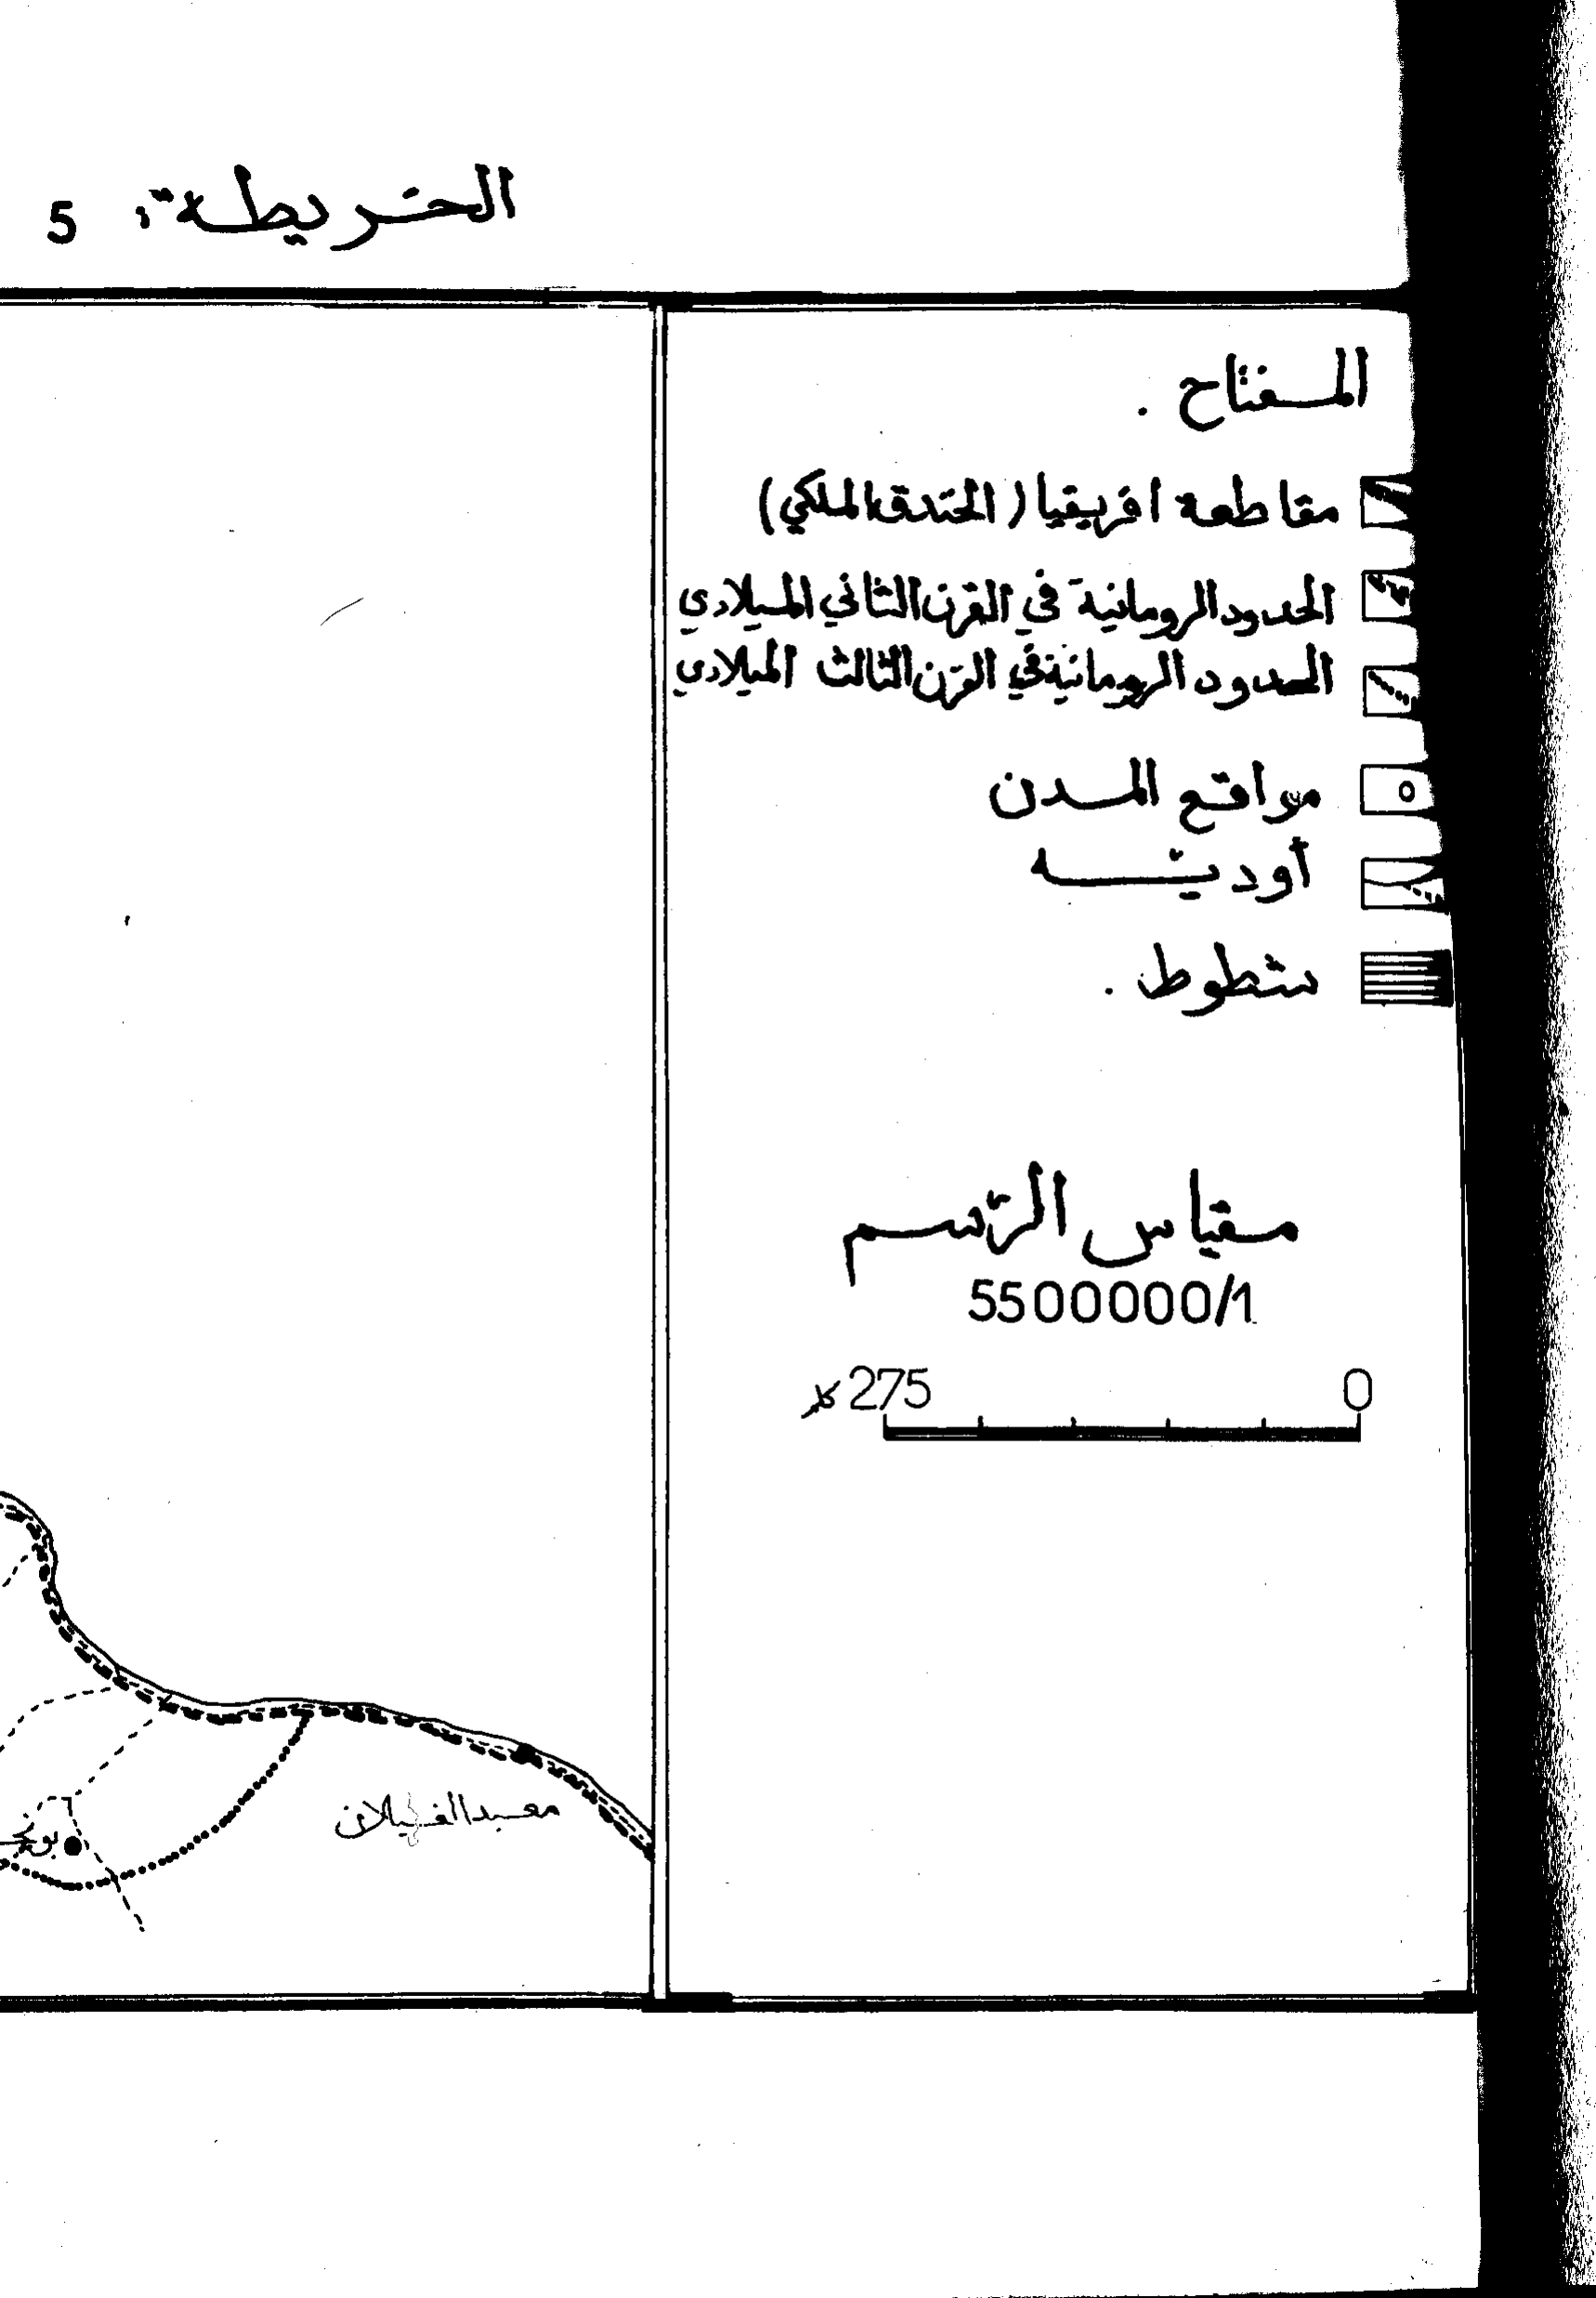 الخريطة: 5
المفتاح .
مقاطعة افريقيا (الخندق الملكي)
الحدود الرومانية في القرن الثاني الميلادي
الحدود الرومانية في القرن الثالث الميلادي
مواقع المدن
أودية
شطوط .
مقياس الرّسم
5500000/1
0 275 كلم
معبد الفيلان